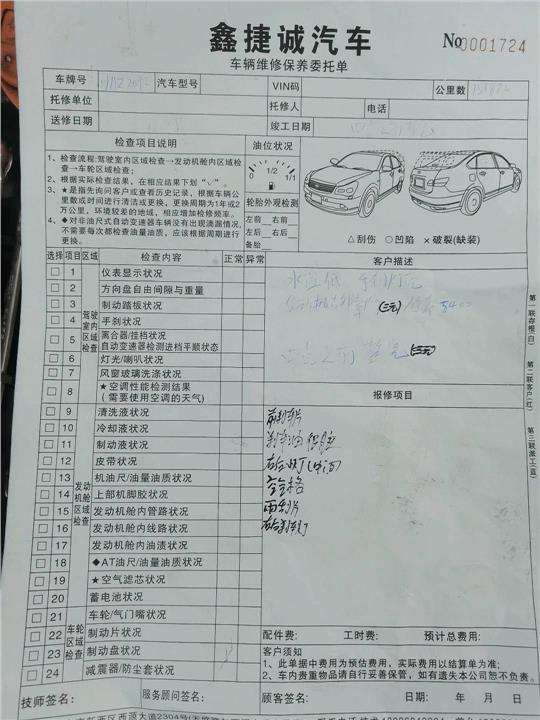 鑫捷诚汽车
No0001724
车辆维修保养委托单
车牌号 汽车型号 VIN码 公里数
托修单位 托修人 电话
送修日期 竣工日期
检查项目说明
1、检查流程:驾驶室内区域检查→发动机舱内区域检查→车轮区域检查;
2、根据实际检查结果,在相应结果下划“√”。
3、★是指先询问客户或查看历史记录,根据车辆公里数或时间进行清洁或更换,更换周期为1年或2万公里,环境较差的地域,相应增加检修频率。
4、◆对非油尺式自动变速器车辆没有出现滴漏情况,不需要每次都检查油量油质,应该根据周期进行更换。
油位状况
0 1/2 1/1
轮胎外观检测
左前 右前
左后 右后
备胎
△刮伤 ○凹陷 ×破裂(缺装)
选择 项目 区域 检查内容 正常 异常
驾驶室内区域检查
1 仪表显示状况
2 方向盘自由间隙与重量
3 制动踏板状况
4 手刹状况
5 离合器/挂档状况
自动变速器检测进档平顺状态
6 灯光/喇叭状况
7 风窗玻璃洗涤状况
8 ★空调性能检测结果
(需要使用空调的天气)
发动机舱区域检查
9 清洗液状况
10 冷却液状况
11 制动液状况
12 皮带状况
13 机油尺/油量油质状况
14 上部机脚胶状况
15 发动机舱内管路状况
16 发动机舱内线路状况
17 发动机舱内油渍状况
18 ◆AT油尺/油量油质状况
19 ★空气滤芯状况
20 蓄电池状况
车轮区域检查
21 车轮/气门嘴状况
22 制动片状况
23 制动盘状况
24 减震器/防尘套状况
客户描述
水位低
报修项目
前刹车片
刹车油
空气格
雨刮片
配件费: 工时费: 预计总费用:
客户须知
1、此单据中费用为预估费用,实际费用以结算单为准;
2、车内贵重物品请自行妥善保管,如有遗失本公司恕不负责。
第一联存根(白)
第二联客户(红)
第三联派工(蓝)
技师签名: 服务顾问签名: 顾客签名: 日期: 年 月 日